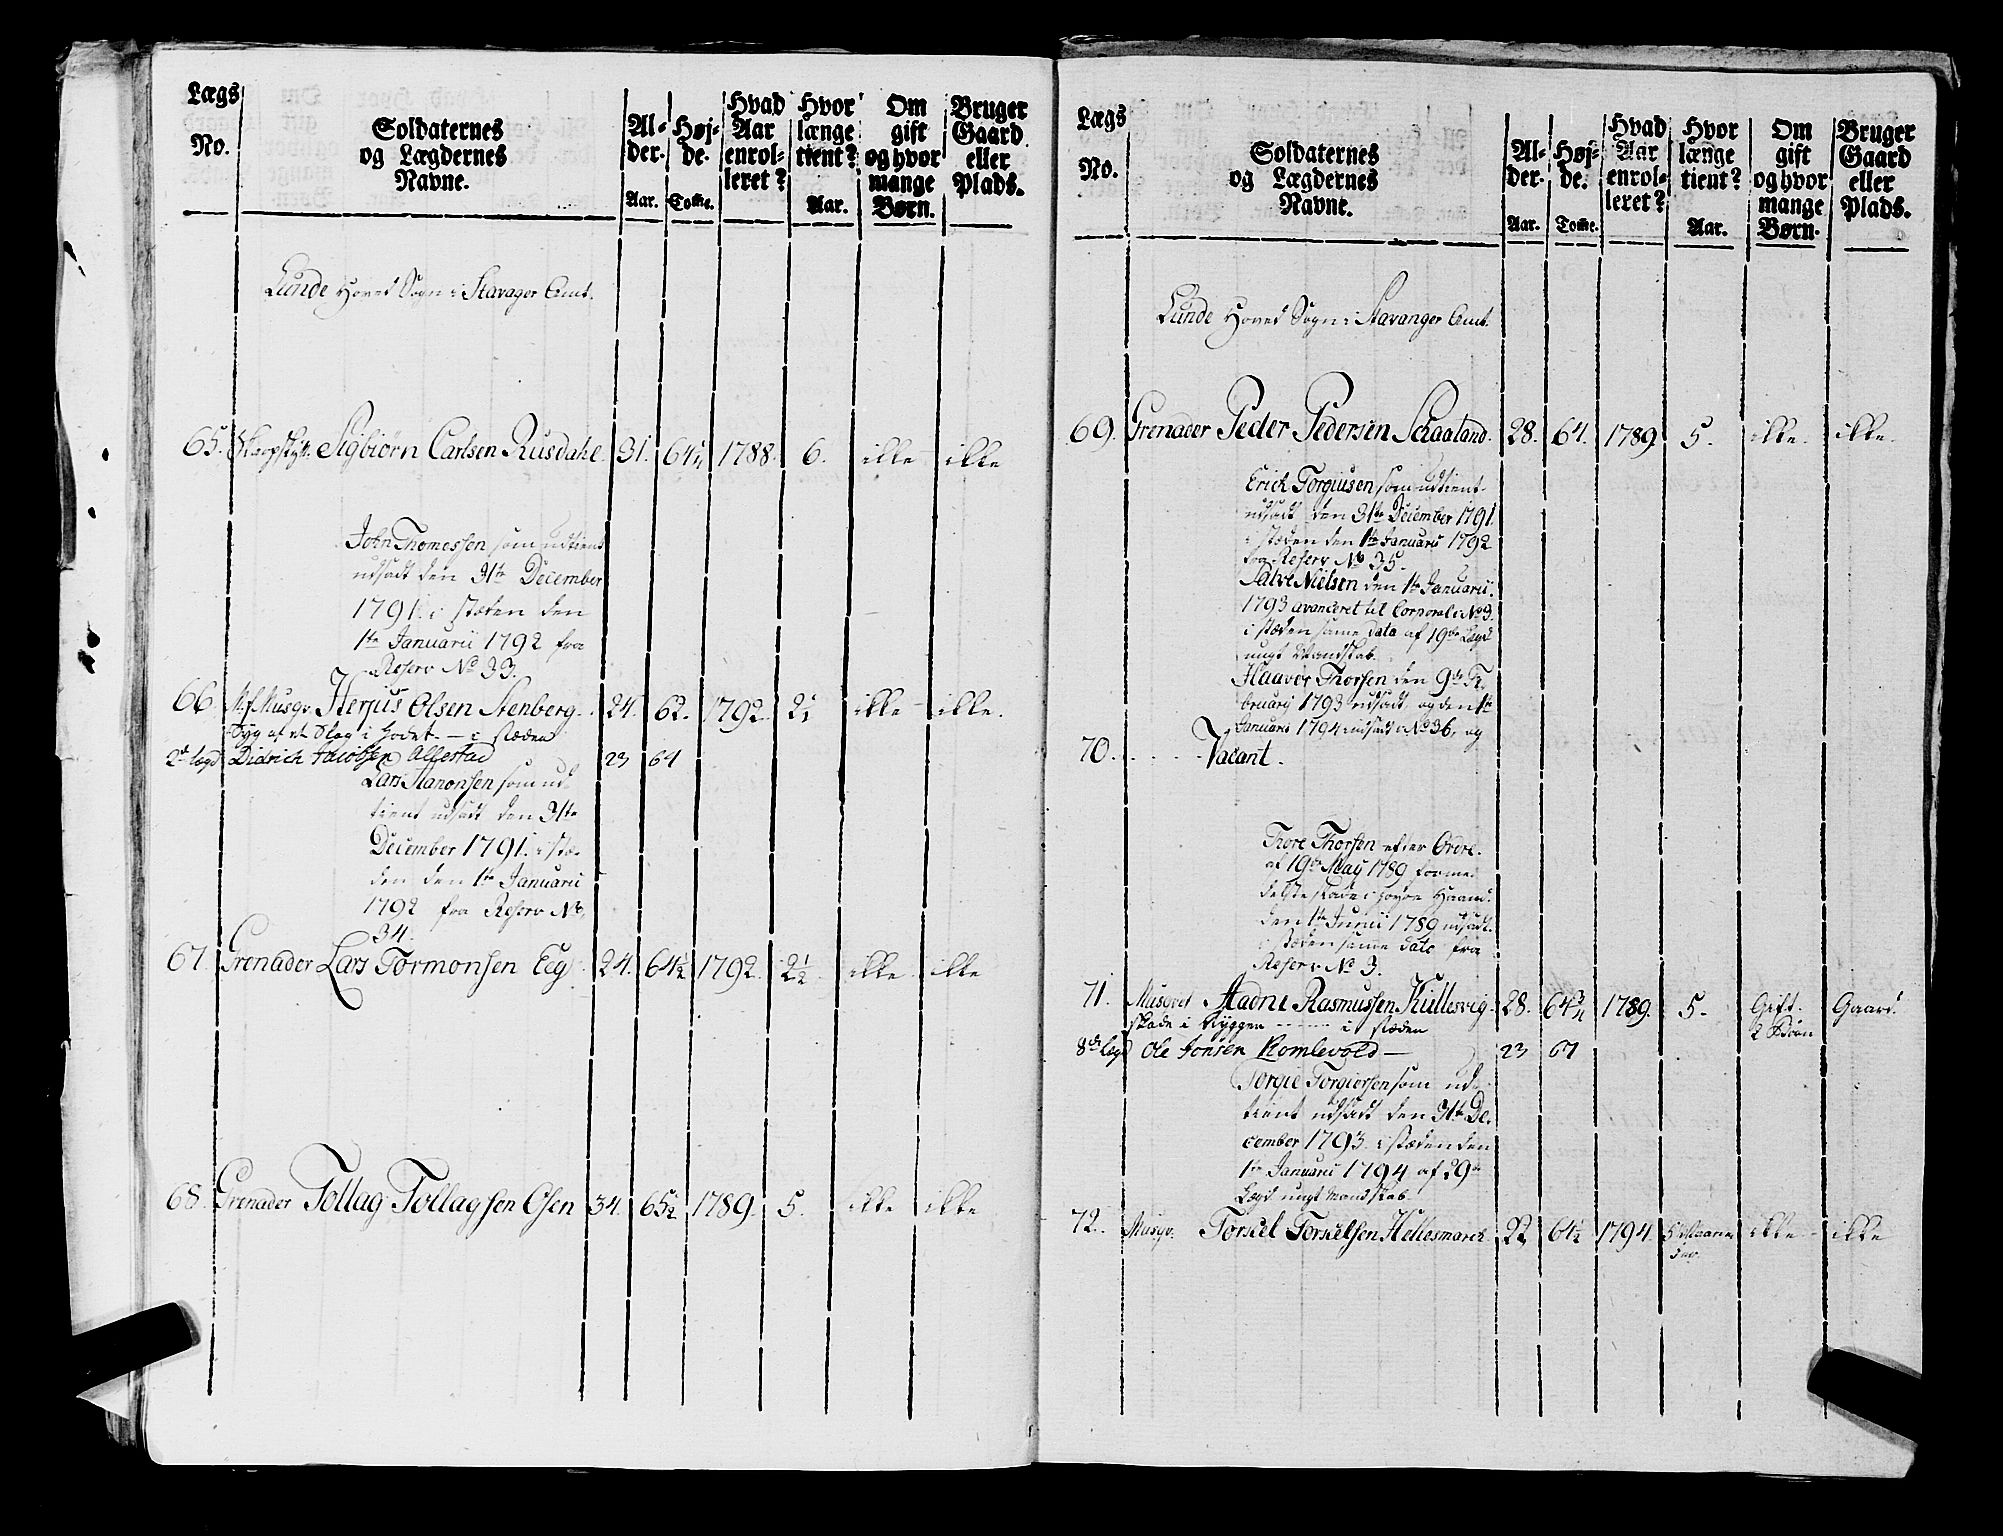 Lægs
No.
Soldaternes
og Lægdernes
Navne.
Al-
der.
Aar.
Høj-
de.
Tom̅e.
Hvad
Aar
enrol-
leret?
Hvor
længe
tient?
Aar.
Om
gift
og hvor
mange
Børn.
Bruger
Gaard
eller
Plads.
Lunde Hoved Sogn i Stavager Amt.
65. Sigbiørn Carlsen Rusdahl 31. 64¼ 1788. 6. ikke ikke
John Thomessen som udtient
udsadt den 31te December
1791. i stæden den
1te Januarii 1792 fra
Reserv No 33.
66 Musqv. Herjus Olsen Stenberg. 24. 62. 1792. 2½ ikke ikke.
Syg af et Slag i Hodet. — i stæden
2de Lægd Didrich Jacobsen Allestad 23 64
Lars Aanonsen som ud-
tient udsadt den 31te
December 1791. i stæ-
den den 1te Januarii
1792 fra Reserv No
34.
67. Grenader Lars Tormonsen Eeg 24. 64½ 1792. 2½ ikke ikke
68. Grenader Tollag Tollagsen Osen 34. 65½ 1789. 5. ikke ikke
Lægs
No.
Soldaternes
og Lægdernes
Navne.
Al-
der.
Aar.
Høj-
de.
Tom̅e.
Hvad
Aar
enrol-
leret?
Hvor
længe
tient?
Aar.
Om
gift
og hvor
mange
Børn.
Bruger
Gaard
eller
Plads.
Lunde Hoved Sogn i Stavanger Amt.
69. Grenader Peder Pedersen Schaaland. 28. 64. 1789. 5. ikke. ikke.
Erich Torgiusen som udtient
udsadt den 31te December 1791.
i stæden den 1te Januarii 1792
fra Reserv No 35.
Salve Nielsen den 1te Januarii
1793 avanceret til Corporal i No 3.
i stæden same dato af 19de Lægd
ungt Mandskab.
Haavor Thorsen den 9de Fe-
bruarij 1793 udsadt og den 1te
Januarii 1794 indsadt i No 36, og
70. Vacant.
Tore Thorsen efter Ordre
af 19de May 1789 forme-
delst skade i høyre Haand
den 1te Junii 1789 udsadt.
i stæden same dato fra
Reserv No 3.
71. Musqvet Aadne Rasmussen Kullesvig 28. 64¾ 1789. 5. Gift. Gaard.
2 Børn
skade i Ryggen i stæden
8de Lægd Ole Jonsen Romlevold — 23 67
Torgie Torgiersen som ud-
tient udsadt den 31te De-
cember 1793. i stæden den
1te Januarii 1794 af 29de
Lægd ungt Mandskab.
72. Musqv. Torkel Torkelsen Hellesmarck 22 64½ 1794. ikke ikke